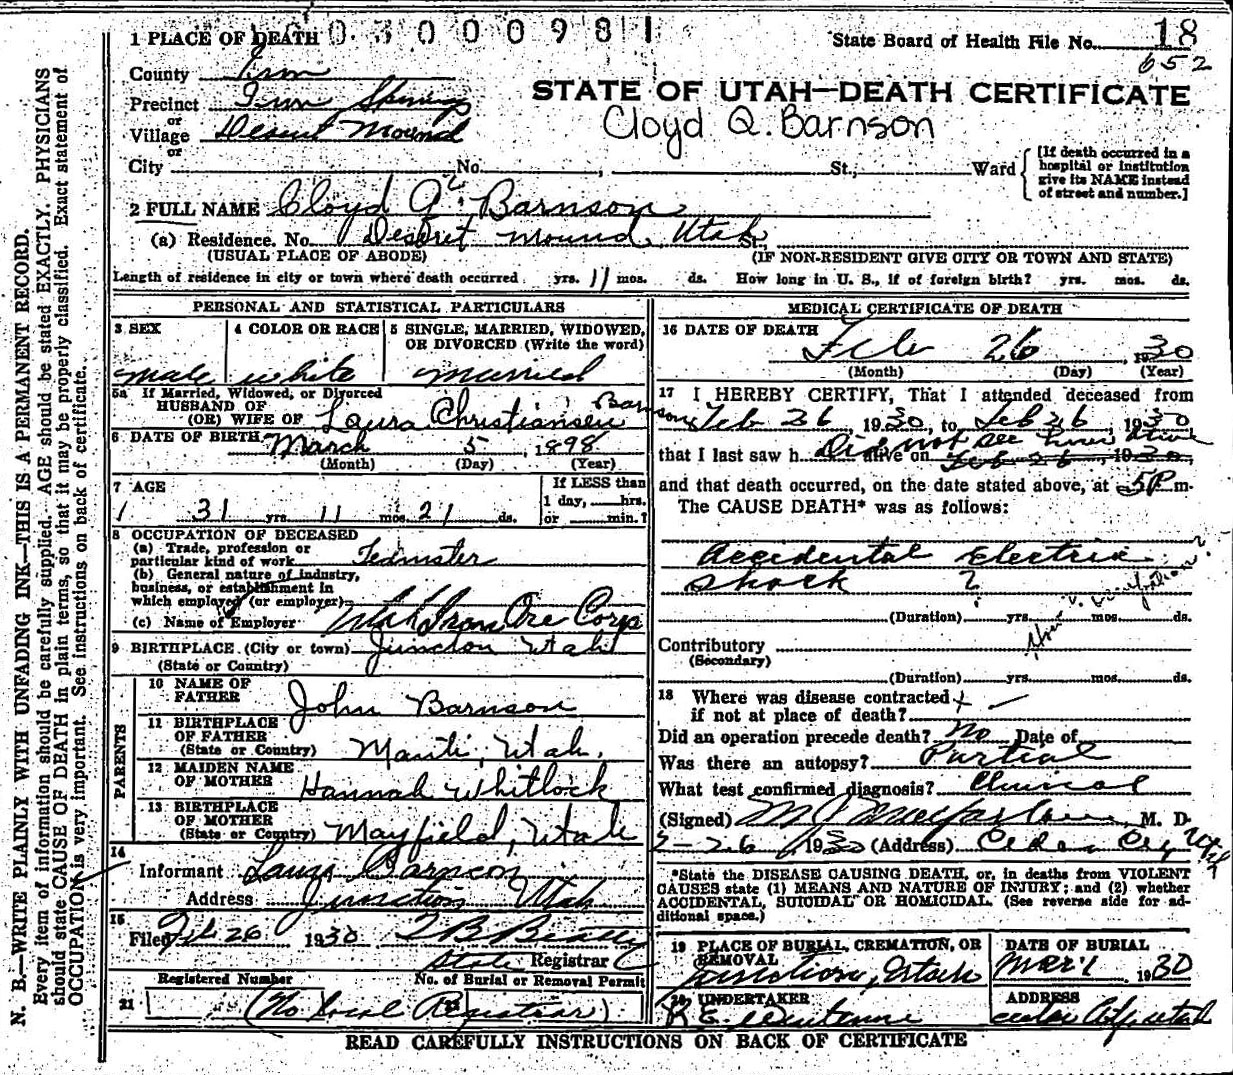 0 3 0 0 0 9 8 1
18
652
State Board of Health File No.
1 PLACE OF DEATH
County Iron
Precinct Iron Springs
or
Village Desert Mound
or
City No. , St., Ward
STATE OF UTAH—DEATH CERTIFICATE
Cloyd Q. Barnson
[If death occurred in a
hospital or institution
give its NAME instead
of street and number.]
2 FULL NAME Cloyd Q. Barnson
(a) Residence. No. Desert Mound Utah St.,
(USUAL PLACE OF ABODE) (IF NON-RESIDENT GIVE CITY OR TOWN AND STATE)
Length of residence in city or town where death occurred yrs. 11 mos. ds. How long in U. S., if of foreign birth? yrs. mos. ds.
PERSONAL AND STATISTICAL PARTICULARS
3 SEX 4 COLOR OR RACE 5 SINGLE, MARRIED, WIDOWED,
OR DIVORCED (Write the word)
Male white Married
5a If Married, Widowed, or Divorced
HUSBAND OF
(OR) WIFE OF Laura Christiansen Barnson
6 DATE OF BIRTH March 5, 1898
(Month) (Day) (Year)
7 AGE If LESS than
1 day, hrs.
31 yrs. 11 mos. 21 ds. or min.?
8 OCCUPATION OF DECEASED
(a) Trade, profession or
particular kind of work Teamster
(b) General nature of industry,
business, or establishment in
which employed (or employer)
(c) Name of Employer Utah Iron Ore Corp
9 BIRTHPLACE (City or town) Junction Utah
(State or Country)
PARENTS
10 NAME OF
FATHER John Barnson
11 BIRTHPLACE
OF FATHER
(State or Country) Manti, Utah.
12 MAIDEN NAME
OF MOTHER Hannah Whitlock
13 BIRTHPLACE
OF MOTHER
(State or Country) Mayfield, Utah
14
Informant Laura Barnson
Address Junction Utah
15
Filed Feb 26 1930
State Registrar
Registered Number No. of Burial or Removal Permit
21 22 (No Local Registrar)
MEDICAL CERTIFICATE OF DEATH
16 DATE OF DEATH
Feb 26, 1930
(Month) (Day) (Year)
17 I HEREBY CERTIFY, That I attended deceased from
Feb 26, 1930, to Feb 26, 1930,
that I last saw h Did not see him alive alive on Feb 26, 1930,
and that death occurred, on the date stated above, at 5P m.
The CAUSE DEATH* was as follows:
Accidental Electric
Shock ?
(Duration) yrs. mos. ds.
Contributory
(Secondary)
(Duration) yrs. mos. ds.
18 Where was disease contracted
if not at place of death?
Did an operation precede death? No Date of
Was there an autopsy? Partial
What test confirmed diagnosis? Clinical
(Signed) M. D.
2-26, 1930 (Address) Cedar City Utah
*State the DISEASE CAUSING DEATH, or, in deaths from VIOLENT
CAUSES state (1) MEANS AND NATURE OF INJURY; and (2) whether
ACCIDENTAL, SUICIDAL OR HOMICIDAL. (See reverse side for ad-
ditional space.)
19 PLACE OF BURIAL, CREMATION, OR
REMOVAL
Junction, Utah
DATE OF BURIAL
Mar 1 1930
20 UNDERTAKER
ADDRESS
Cedar City, Utah
READ CAREFULLY INSTRUCTIONS ON BACK OF CERTIFICATE
N. B.—WRITE PLAINLY WITH UNFADING INK—THIS IS A PERMANENT RECORD.
Every item of information should be carefully supplied. AGE should be stated EXACTLY. PHYSICIANS
should state CAUSE OF DEATH in plain terms, so that it may be properly classified. Exact statement of
OCCUPATION is very important. See instructions on back of certificate.